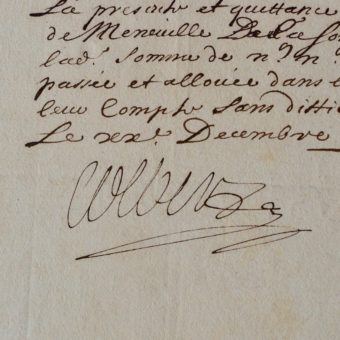 La presente et quittance
de Meneville De la so
lad. somme de nᵐ nᶜ
passée et allouée dans l
leur Compte sans diffic
Le xxᵉ. Decembre
Colbert